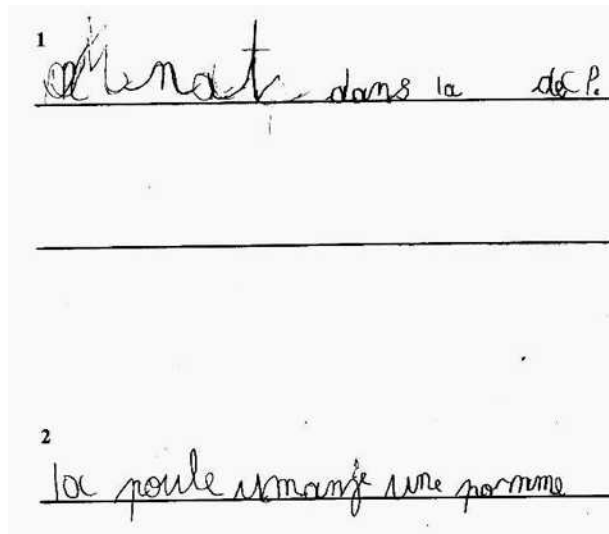 1
dans la de P.
2
la poule manje une pomme